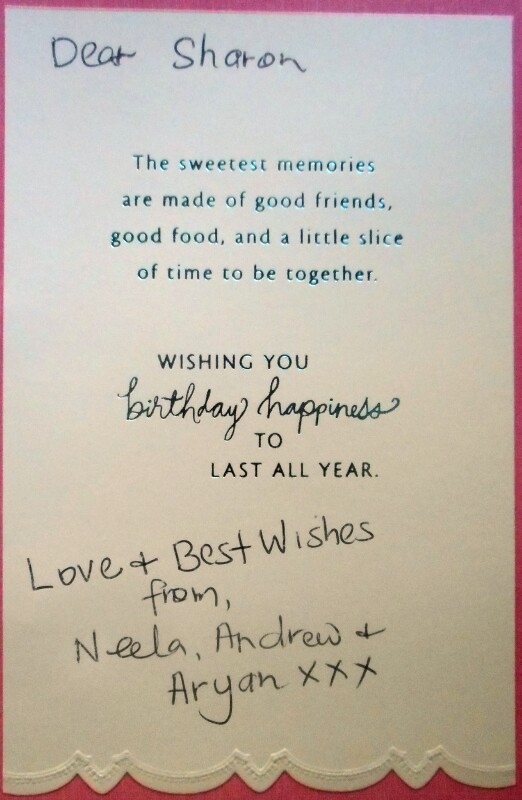 Dear Sharon
The sweetest memories
are made of good friends,
good food, and a little slice
of time to be together.
WISHING YOU
birthday happiness
TO
LAST ALL YEAR.
Love + Best Wishes
from,
Neela, Andrew +
Aryan xxx